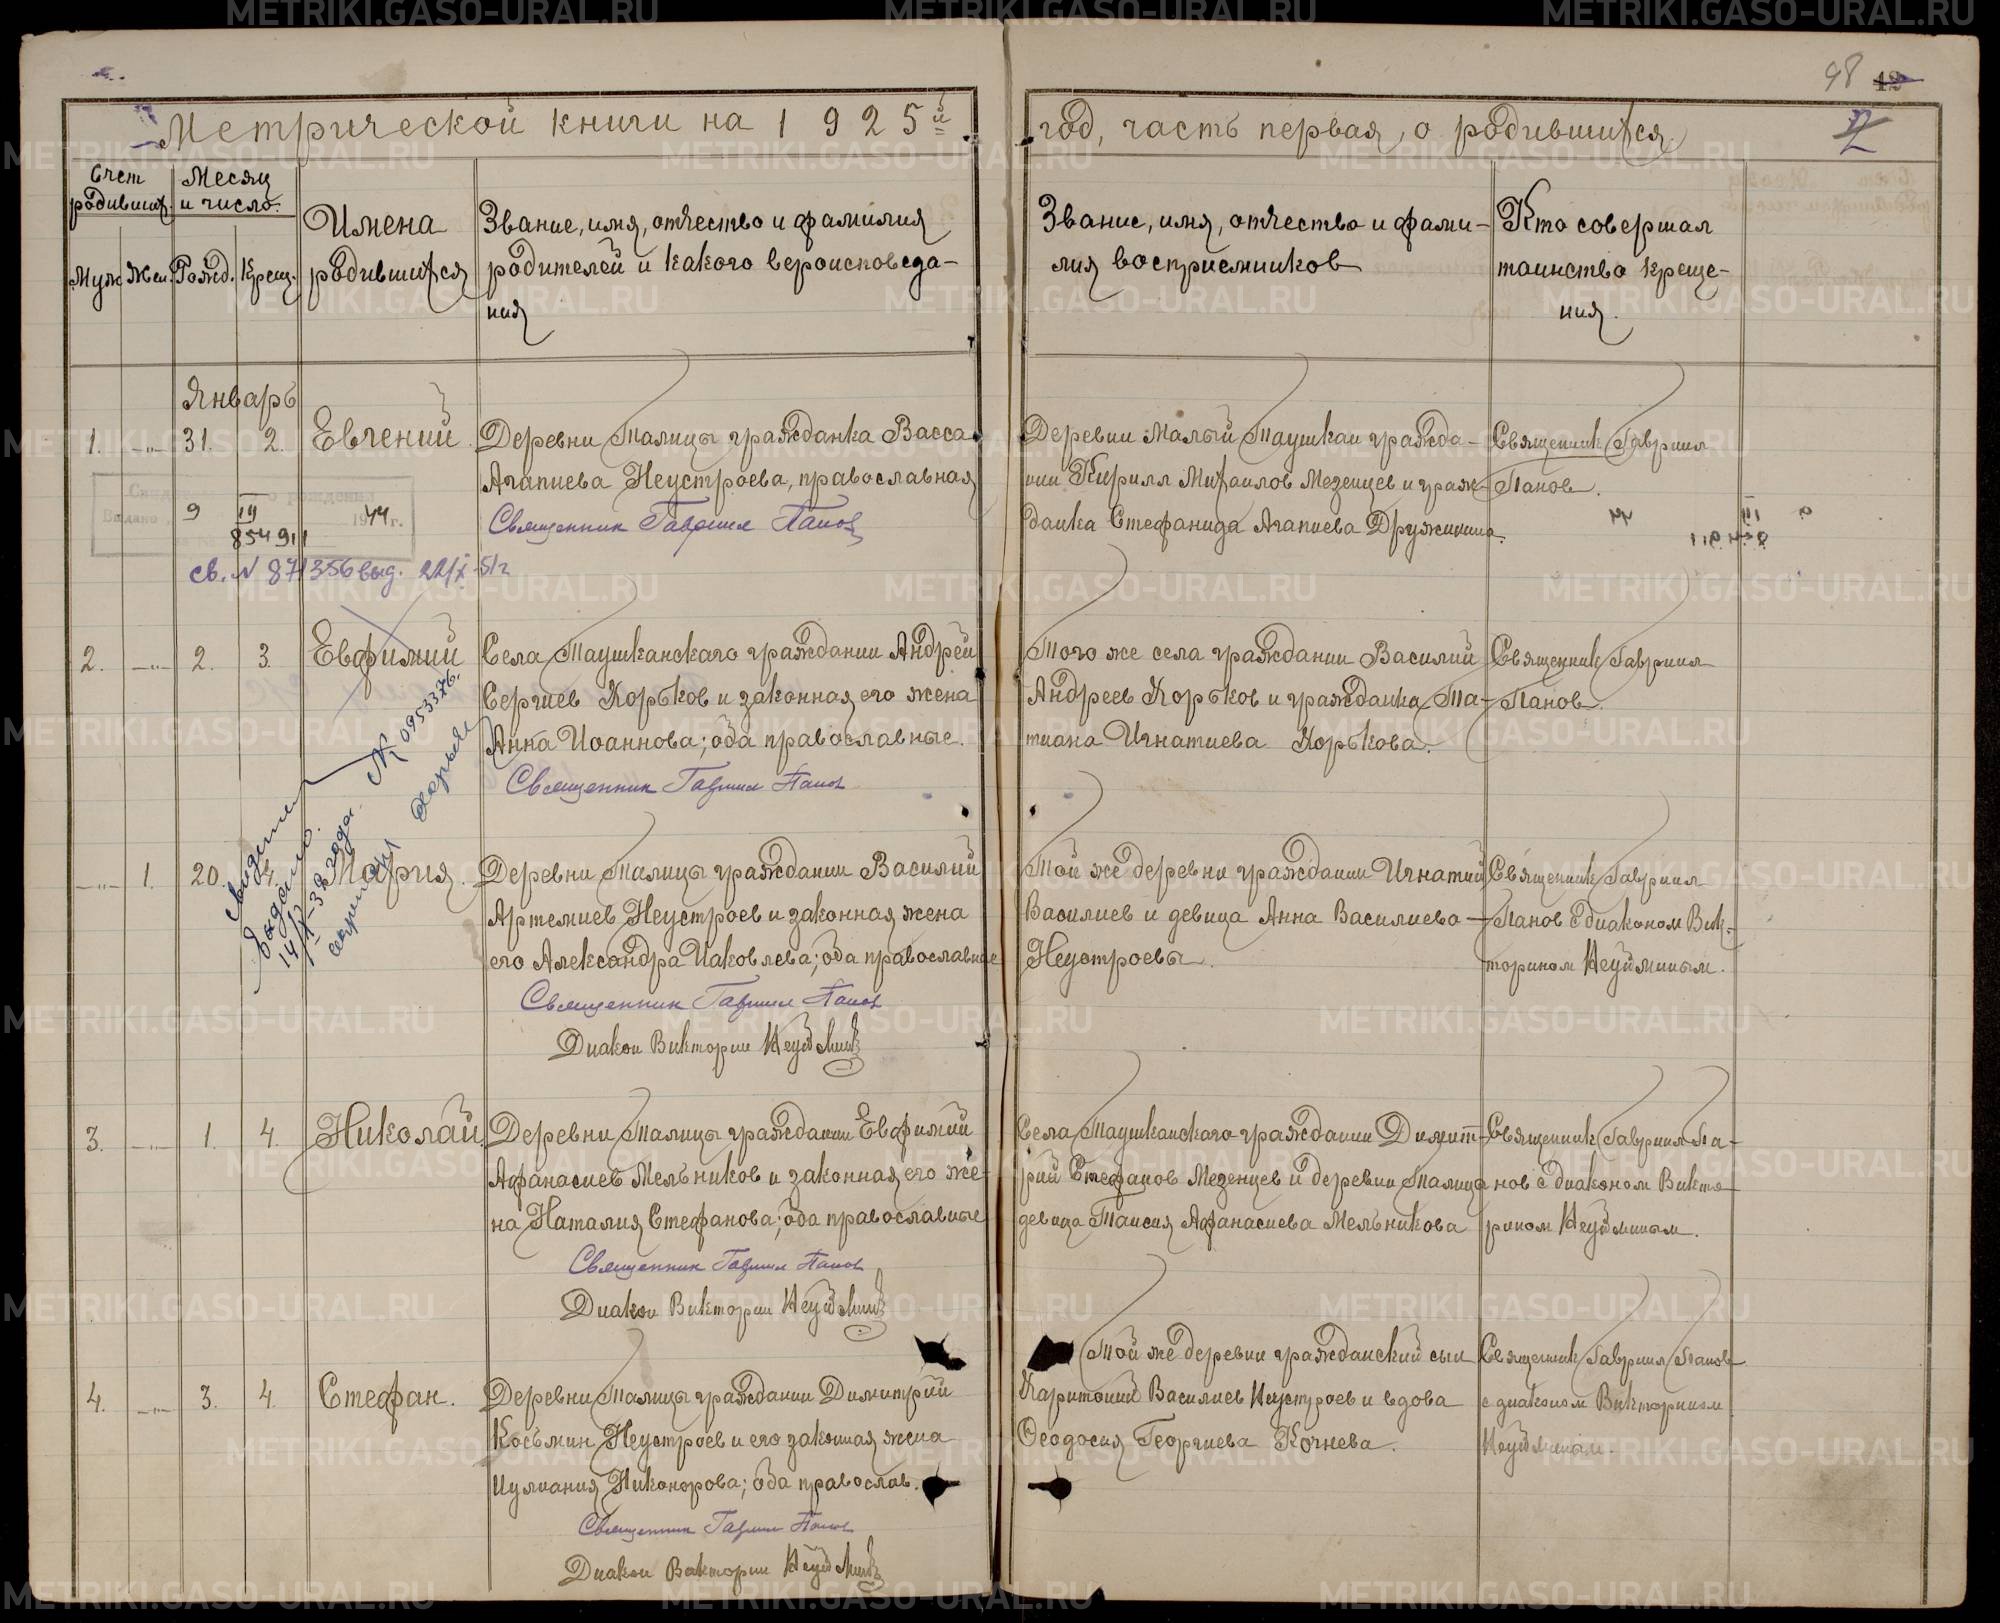 Метрической книги на 1925й
год, часть первая, о родившихся.
98
Счет родивших.
Месяц и число.
Муж. Жен. Рожд. Крещ.
Имена
родившихся
Звание, имя, отчество и фамилия
родителей и какого вероисповеда-
ния
Звание, имя, отчество и фами-
лия восприемников
Кто совершал
таинство креще-
ния.
Январь
1. -"- 31. 2. Евгений
Деревни Талицы гражданка Васса
Агапиева Неустроева, православная
Священник Гавриил Панов
Деревни Малый Таушкан гражда-
нин Кирилл Михаилов Мезенцев и граж-
данка Стефанида Агапиева Дружинина.
Священник Гавриил
Панов.
9 III 44 г.
854911
св. N 871356 выд. 22/X-51г
2. -"- 2. 3. Евфимий
Села Таушканского гражданин Андрей
Сергиев Хорьков и законная его жена
Анна Иоаннова; оба православные.
Священник Гавриил Панов
Того же села гражданин Василий
Андреев Хорьков и гражданка Та-
тиана Игнатиева Хорькова.
Священник Гавриил
Панов.
№ 0953376.
-"- 1. 20. 4. Мария.
Деревни Талицы гражданин Василий
Артемиев Неустроев и законная жена
его Александра Иаковлева; оба православные
Священник Гавриил Панов
Диакон Викторин Неуймин
Той же деревни гражданин Игнатий
Василиев и девица Анна Василиева
Неустроевы.
Священник Гавриил
Панов с диаконом Вик-
торином Неуйминым.
3. -"- 1. 4. Николай
Деревни Талицы гражданин Евфимий
Афанасиев Мельников и законная его же-
на Наталия Стефанова; оба православные
Священник Гавриил Панов
Диакон Викторин Неуймин
Села Таушканского гражданин Димит-
рий Стефанов Мезенцев и деревни Талицы
девица Таисия Афанасиева Мельникова
Священник Гавриил Па-
нов с диаконом Викто-
рином Неуйминым.
4. -"- 3. 4. Стефан.
Деревни Талицы гражданин Димитрий
Косьмин Неустроев и его законная жена
Иулиания Никонорова; оба православ.
Священник Гавриил Панов
Диакон Викторин Неуймин
Той же деревни гражданский сын
Харитоний Василиев Неустроев и вдова
Феодосия Георгиева Кочнева.
Священник Гавриил Панов
с диаконом Викторином
Неуйминым.
METRIKI.GASO-URAL.RU